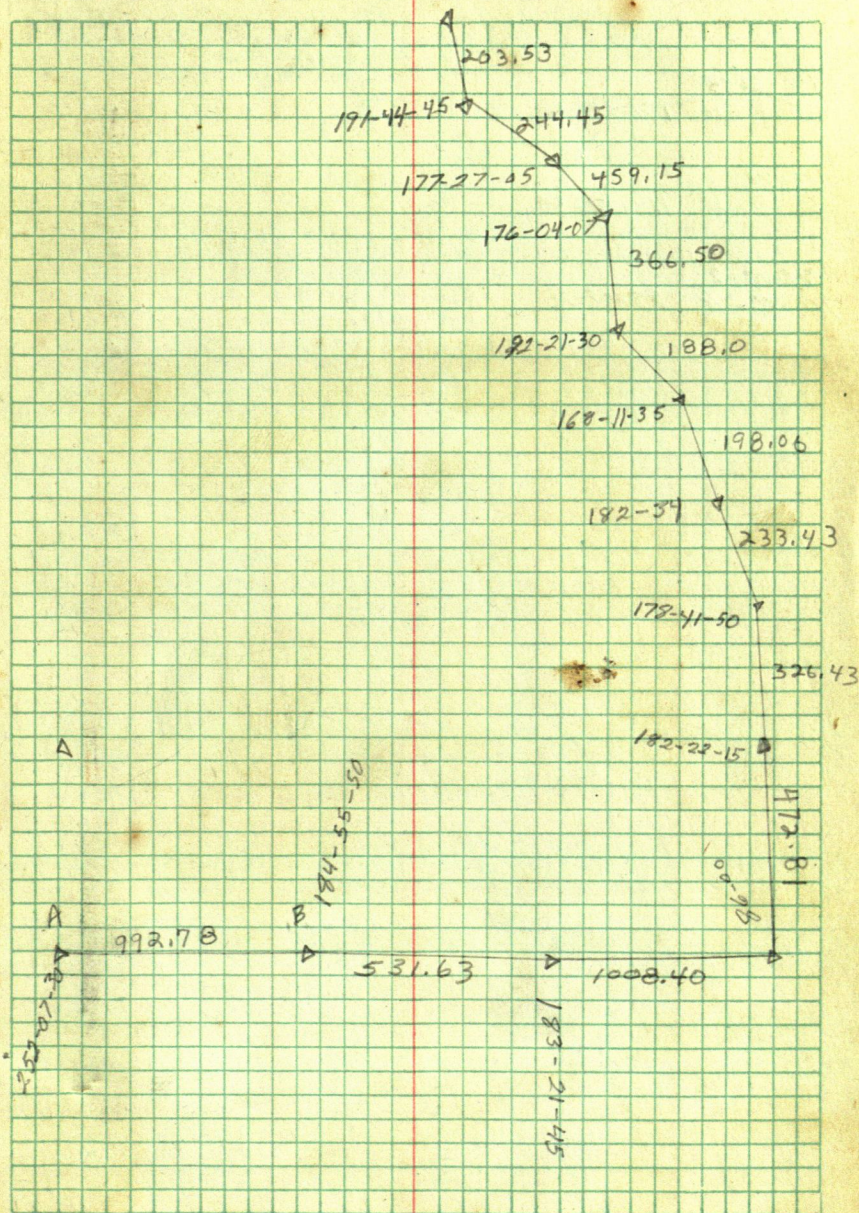 203.53
191-44-45
244.45
177-27-05
459.15
176-04-07
366.50
188.0
168-11-35
198.06
182-34
233.43
178-41-50
326.43
182-22-15
472.81
86-00
184-55-50
A
B
992.78
531.63
1008.40
252-07-30
183-21-45